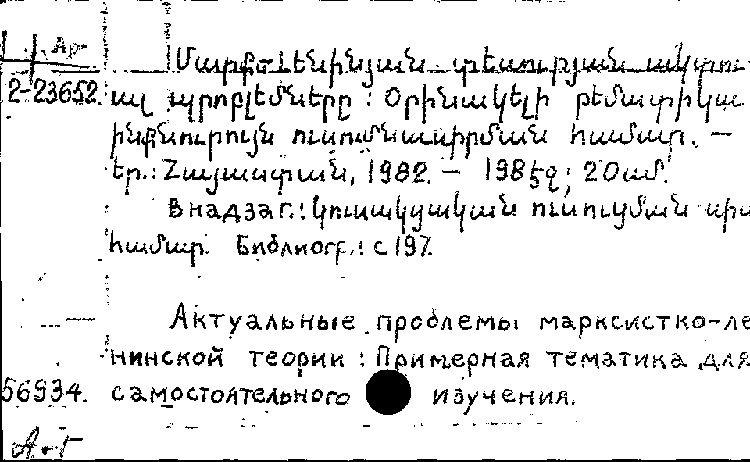 Ар
Մարքս-լենինյան տեսության ակտու-
2-23652. ալ պրոբլեմները : Օրինակելի թեմատիկա
ինքնուրույն ուսումնասիրման համար. —
Եր.: Հայաստան, 1982. — 198 էջ; 20 սմ.
В надзаг.: Կուսակցական ուսուցման
համար. Библиогр.: с 197.
Актуальные проблемы марксистско-ле
нинской теории : Примерная тематика для
56934. самостоятельного изучения.
А-Г